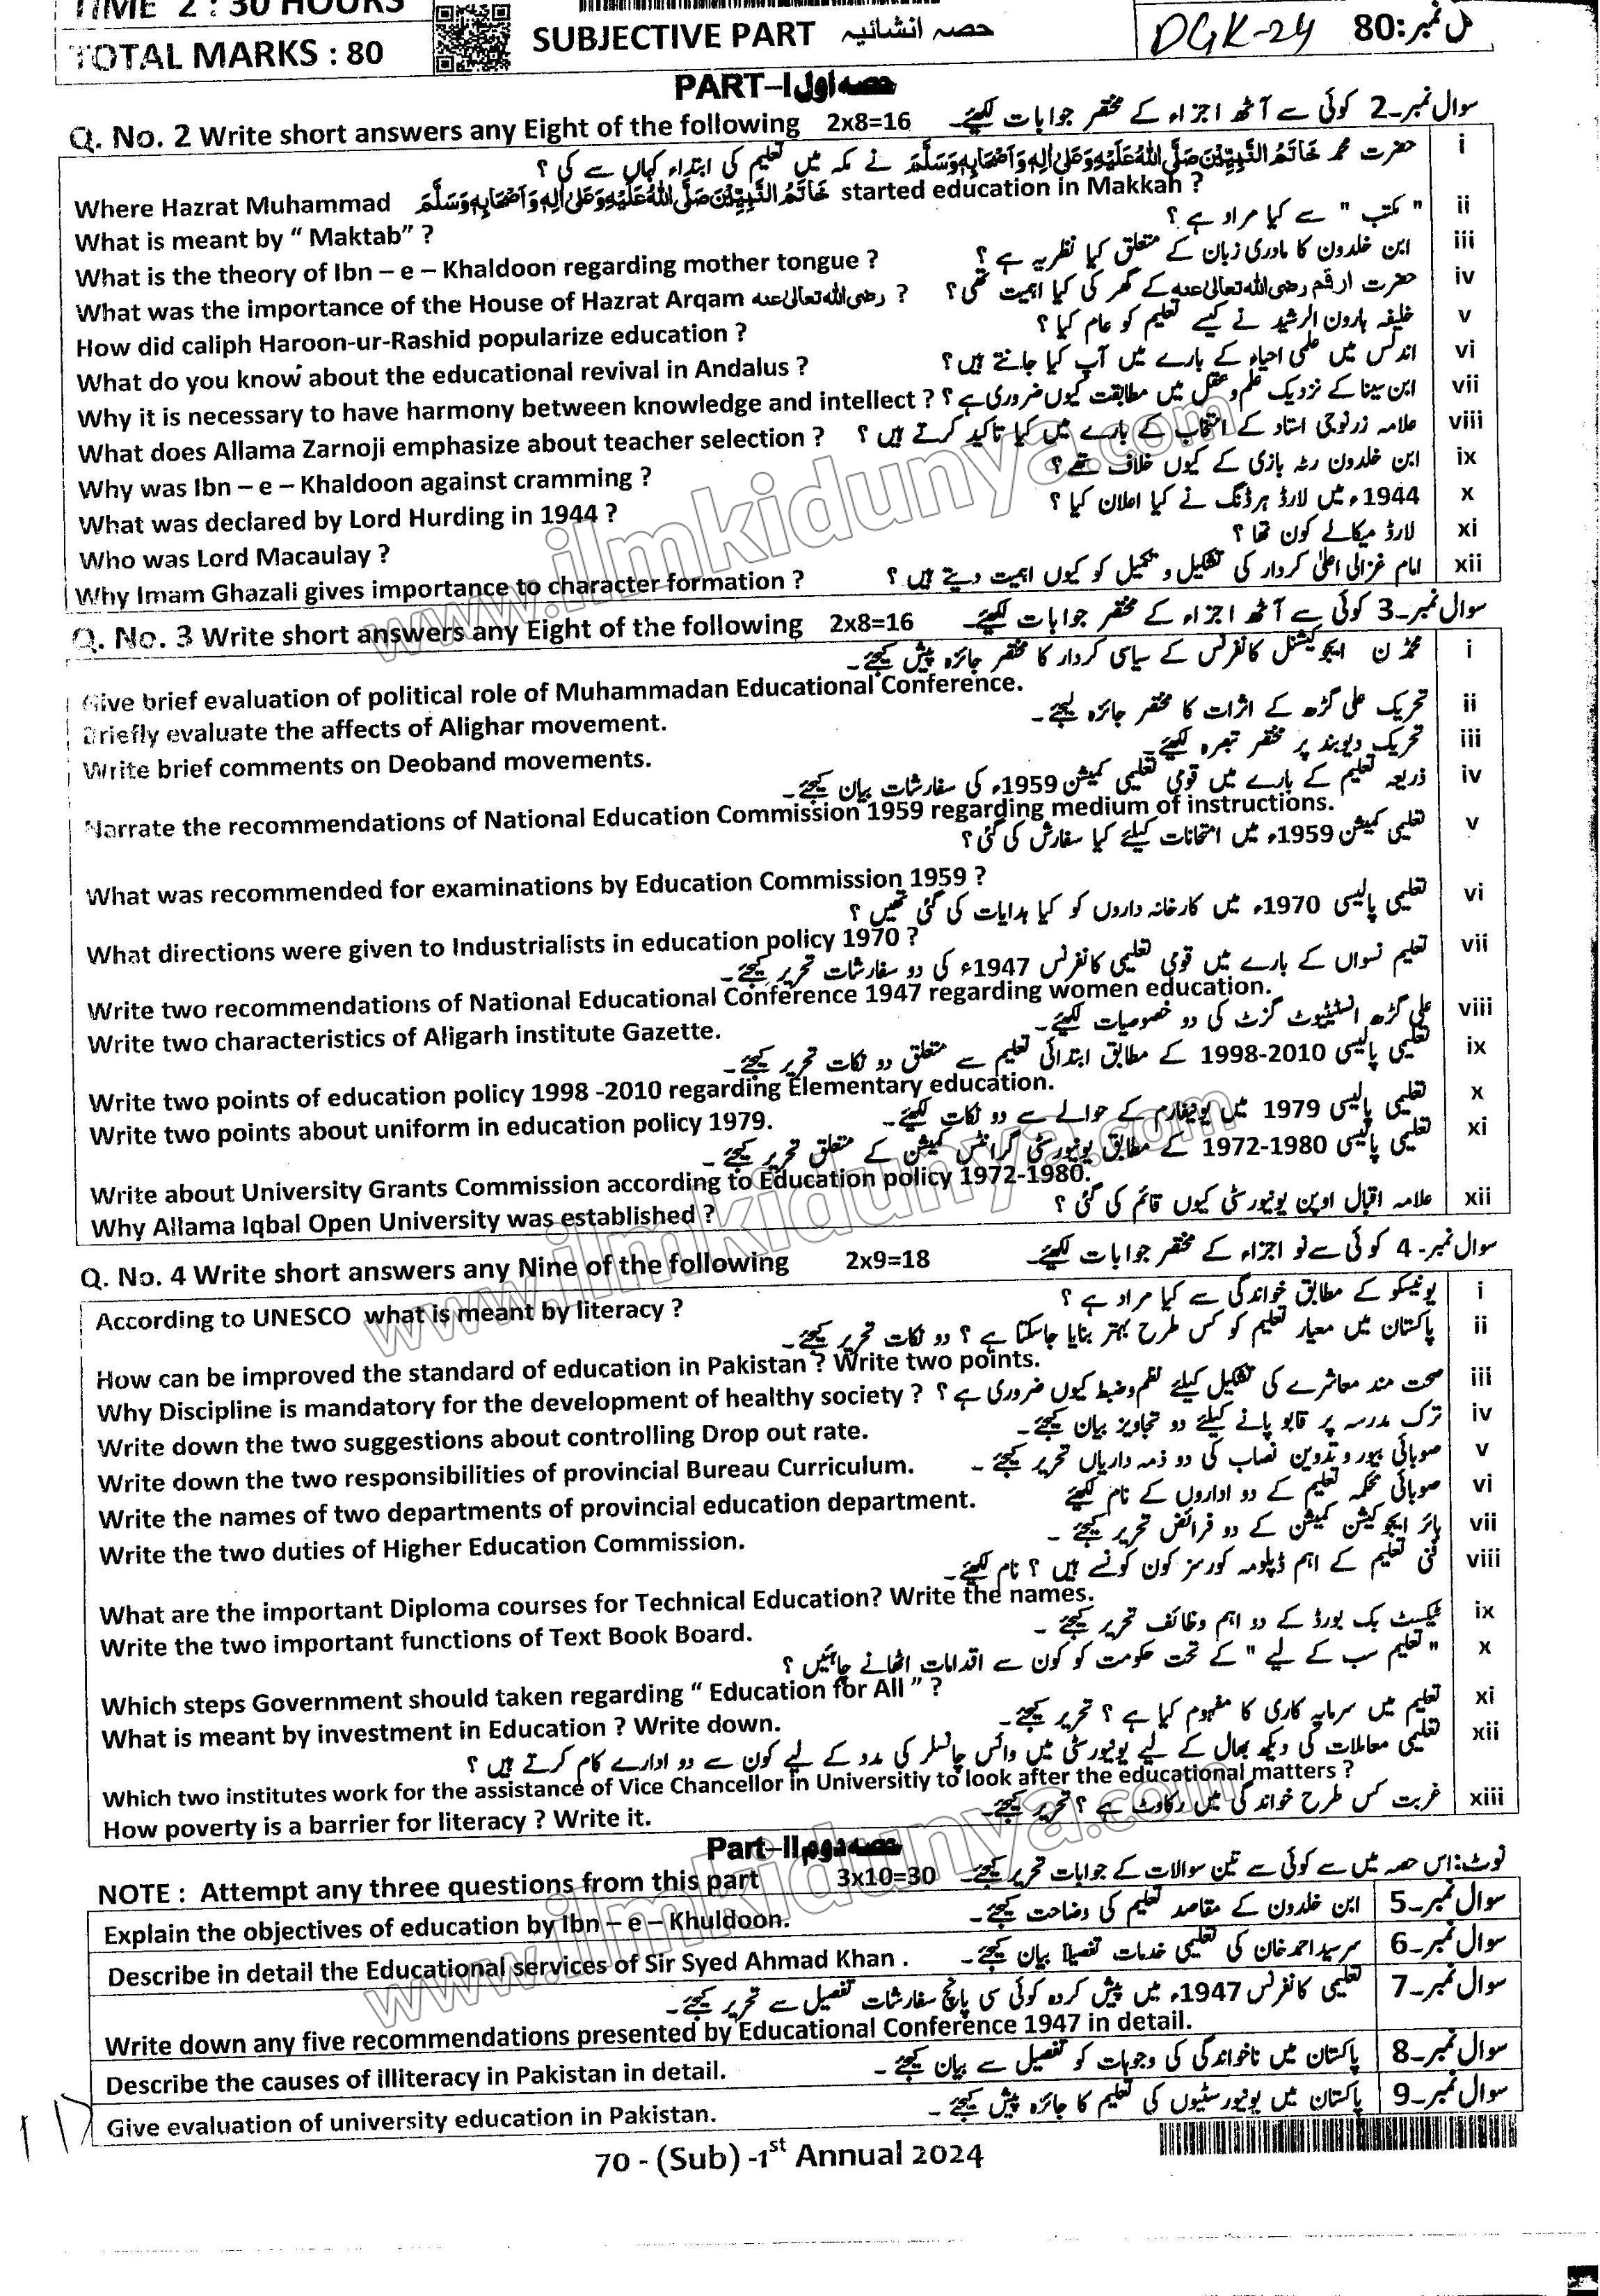 TIME 2 : 30 HOURS
TOTAL MARKS : 80
SUBJECTIVE PART حصہ انشائیہ
DGK-24
کل نمبر:80
PART–I حصہ اول
Q. No. 2 Write short answers any Eight of the following 2x8=16 سوال نمبر۔2 کوئی سے آٹھ اجزاء کے مختصر جوابات لکھیئے۔
حضرت محمد خَاتَمُ النَّبِيّٖنَ صَلَّى اللهُ عَلَيْهِ وَعَلٰى اٰلِهٖ وَاَصْحَابِهٖ وَسَلَّمَ نے مکہ میں تعلیم کی ابتداء کہاں سے کی ؟ i
Where Hazrat Muhammad خَاتَمُ النَّبِيّٖنَ صَلَّى اللهُ عَلَيْهِ وَعَلٰى اٰلِهٖ وَاَصْحَابِهٖ وَسَلَّمَ started education in Makkah ?
What is meant by “ Maktab” ? " مکتب " سے کیا مراد ہے ؟ ii
What is the theory of Ibn – e – Khaldoon regarding mother tongue ? ابن خلدون کا مادری زبان کے متعلق کیا نظریہ ہے ؟ iii
What was the importance of the House of Hazrat Arqam رضی اللہ تعالیٰ عنہ ? حضرت ارقم رضی اللہ تعالیٰ عنہ کے گھر کی کیا اہمیت تھی ؟ iv
How did caliph Haroon-ur-Rashid popularize education ? خلیفہ ہارون الرشید نے کیسے تعلیم کو عام کیا ؟ v
What do you know about the educational revival in Andalus ? اندلس میں علمی احیاء کے بارے میں آپ کیا جانتے ہیں ؟ vi
Why it is necessary to have harmony between knowledge and intellect ? ابن سینا کے نزدیک علم و عقل میں مطابقت کیوں ضروری ہے ؟ vii
What does Allama Zarnoji emphasize about teacher selection ? علامہ زرنوجی استاد کے انتخاب کے بارے میں کیا تاکید کرتے ہیں ؟ viii
Why was Ibn – e – Khaldoon against cramming ? ابن خلدون رٹہ بازی کے کیوں خلاف تھے ؟ ix
What was declared by Lord Hurding in 1944 ? 1944ء میں لارڈ ہرڈنگ نے کیا اعلان کیا ؟ x
Who was Lord Macaulay ? لارڈ میکالے کون تھا ؟ xi
Why Imam Ghazali gives importance to character formation ? امام غزالی اعلیٰ کردار کی تشکیل و تکمیل کو کیوں اہمیت دیتے ہیں ؟ xii
Q. No. 3 Write short answers any Eight of the following 2x8=16 سوال نمبر۔3 کوئی سے آٹھ اجزاء کے مختصر جوابات لکھیئے۔
محمڈن ایجوکیشنل کانفرنس کے سیاسی کردار کا مختصر جائزہ پیش کیجئے۔ i
Give brief evaluation of political role of Muhammadan Educational Conference.
Briefly evaluate the affects of Alighar movement. تحریک علی گڑھ کے اثرات کا مختصر جائزہ لیجئے۔ ii
Write brief comments on Deoband movements. تحریک دیوبند پر مختصر تبصرہ لکھیئے۔ iii
ذریعہ تعلیم کے بارے میں قومی تعلیمی کمیشن 1959ء کی سفارشات بیان کیجئے۔ iv
Narrate the recommendations of National Education Commission 1959 regarding medium of instructions.
تعلیمی کمیشن 1959ء میں امتحانات کیلئے کیا سفارش کی گئی ؟ v
What was recommended for examinations by Education Commission 1959 ?
تعلیمی پالیسی 1970ء میں کارخانہ داروں کو کیا ہدایات کی گئی تھیں ؟ vi
What directions were given to Industrialists in education policy 1970 ?
تعلیم نسواں کے بارے میں قومی تعلیمی کانفرنس 1947ء کی دو سفارشات تحریر کیجئے۔ vii
Write two recommendations of National Educational Conference 1947 regarding women education.
Write two characteristics of Aligarh institute Gazette. علی گڑھ انسٹیٹیوٹ گزٹ کی دو خصوصیات لکھیئے۔ viii
تعلیمی پالیسی 1998-2010 کے مطابق ابتدائی تعلیم سے متعلق دو نکات تحریر کیجئے۔ ix
Write two points of education policy 1998 -2010 regarding Elementary education.
Write two points about uniform in education policy 1979. تعلیمی پالیسی 1979 میں یونیفارم کے حوالے سے دو نکات لکھیئے۔ x
تعلیمی پالیسی 1972-1980 کے مطابق یونیورسٹی گرانٹس کمیشن کے متعلق تحریر کیجئے۔ xi
Write about University Grants Commission according to Education policy 1972-1980.
Why Allama Iqbal Open University was established ? علامہ اقبال اوپن یونیورسٹی کیوں قائم کی گئی ؟ xii
Q. No. 4 Write short answers any Nine of the following 2x9=18 سوال نمبر۔4 کوئی سے نو اجزاء کے مختصر جوابات لکھیئے۔
According to UNESCO what is meant by literacy ? یونیسکو کے مطابق خواندگی سے کیا مراد ہے ؟ i
پاکستان میں معیار تعلیم کو کس طرح بہتر بنایا جاسکتا ہے ؟ دو نکات تحریر کیجئے۔ ii
How can be improved the standard of education in Pakistan ? Write two points.
Why Discipline is mandatory for the development of healthy society ? صحت مند معاشرے کی تشکیل کیلئے نظم و ضبط کیوں ضروری ہے ؟ iii
Write down the two suggestions about controlling Drop out rate. ترک مدرسہ پر قابو پانے کیلئے دو تجاویز بیان کیجئے۔ iv
Write down the two responsibilities of provincial Bureau Curriculum. صوبائی بیورو تدوین نصاب کی دو ذمہ داریاں تحریر کیجئے۔ v
Write the names of two departments of provincial education department. صوبائی محکمہ تعلیم کے دو اداروں کے نام لکھیئے vi
Write the two duties of Higher Education Commission. ہائر ایجوکیشن کمیشن کے دو فرائض تحریر کیجئے۔ vii
فنی تعلیم کے اہم ڈپلومہ کورسز کون کونسے ہیں ؟ نام لکھیئے۔ viii
What are the important Diploma courses for Technical Education? Write the names.
Write the two important functions of Text Book Board. ٹیکسٹ بک بورڈ کے دو اہم وظائف تحریر کیجئے۔ ix
" تعلیم سب کے لیے " کے تحت حکومت کو کون سے اقدامات اٹھانے چاہئیں ؟ x
Which steps Government should taken regarding “ Education for All ” ?
What is meant by investment in Education ? Write down. تعلیم میں سرمایہ کاری کا مفہوم کیا ہے ؟ تحریر کیجئے۔ xi
تعلیمی معاملات کی دیکھ بھال کے لیے یونیورسٹی میں وائس چانسلر کی مدد کے لیے کون سے دو ادارے کام کرتے ہیں ؟ xii
Which two institutes work for the assistance of Vice Chancellor in Universitiy to look after the educational matters ?
How poverty is a barrier for literacy ? Write it. غربت کس طرح خواندگی میں رکاوٹ ہے ؟ تحریر کیجئے۔ xiii
Part–II حصہ دوم
NOTE : Attempt any three questions from this part 3x10=30 نوٹ: اس حصہ میں سے کوئی سے تین سوالات کے جوابات تحریر کیجئے۔
Explain the objectives of education by Ibn – e – Khuldoon. ابن خلدون کے مقاصد تعلیم کی وضاحت کیجئے۔ سوال نمبر۔5
Describe in detail the Educational services of Sir Syed Ahmad Khan . سرسید احمد خان کی تعلیمی خدمات تفصیلاً بیان کیجئے۔ سوال نمبر۔6
تعلیمی کانفرنس 1947ء میں پیش کردہ کوئی سی پانچ سفارشات تفصیل سے تحریر کیجئے۔ سوال نمبر۔7
Write down any five recommendations presented by Educational Conference 1947 in detail.
Describe the causes of illiteracy in Pakistan in detail. پاکستان میں ناخواندگی کی وجوہات کو تفصیل سے بیان کیجئے۔ سوال نمبر۔8
Give evaluation of university education in Pakistan. پاکستان میں یونیورسٹیوں کی تعلیم کا جائزہ پیش کیجئے۔ سوال نمبر۔9
70 - (Sub) -1st Annual 2024
www.ilmkidunya.com
www.ilmkidunya.com
www.ilmkidunya.com